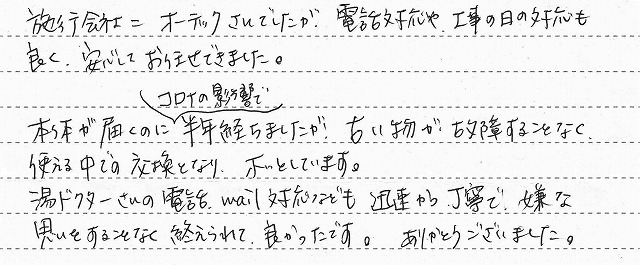 施行会社＝オーデックさんでしたが、電話対応や、工事の日の対応も
良く、安心してお任せできました。
コロナの影響で
本体が届くのに半年経ちましたが、古い物が故障することなく、
使える中での交換となり、ホッとしています。
湯ドクターさんの電話、mail対応なども迅速かつ丁寧で、嫌な
思いをすることなく終えられて、良かったです。ありがとうございました。